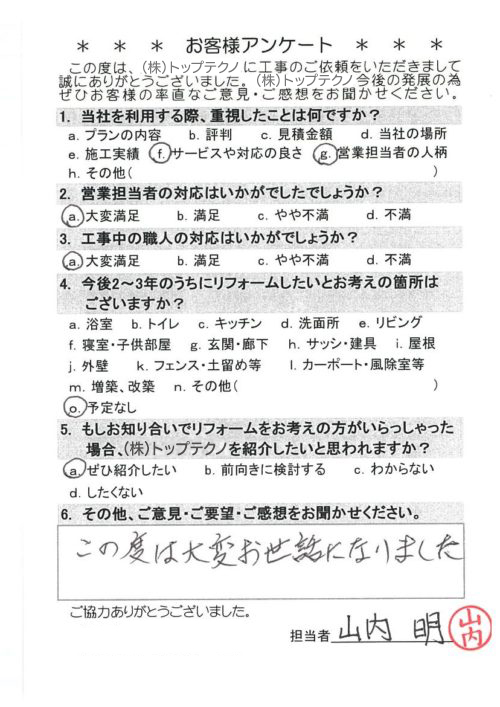 ＊ ＊ ＊ お客様アンケート ＊ ＊ ＊
この度は、(株)トップテクノに工事のご依頼をいただきまして
誠にありがとうございました。(株)トップテクノ今後の発展の為
ぜひお客様の率直なご意見・ご感想をお聞かせください。
1. 当社を利用する際、重視したことは何ですか？
a. プランの内容 b. 評判 c. 見積金額 d. 当社の場所
e. 施工実績 f. サービスや対応の良さ g. 営業担当者の人柄
h. その他( )
2. 営業担当者の対応はいかがでしたでしょうか？
a. 大変満足 b. 満足 c. やや不満 d. 不満
3. 工事中の職人の対応はいかがでしょうか？
a. 大変満足 b. 満足 c. やや不満 d. 不満
4. 今後2～3年のうちにリフォームしたいとお考えの箇所は
ございますか？
a. 浴室 b. トイレ c. キッチン d. 洗面所 e. リビング
f. 寝室・子供部屋 g. 玄関・廊下 h. サッシ・建具 i. 屋根
j. 外壁 k. フェンス・土留め等 l. カーポート・風除室等
m. 増築、改築 n. その他( )
o. 予定なし
5. もしお知り合いでリフォームをお考えの方がいらっしゃった
場合、(株)トップテクノを紹介したいと思われますか？
a. ぜひ紹介したい b. 前向きに検討する c. わからない
d. したくない
6. その他、ご意見・ご要望・ご感想をお聞かせください。
この度は大変お世話になりました
ご協力ありがとうございました。
担当者 山内 明 山内